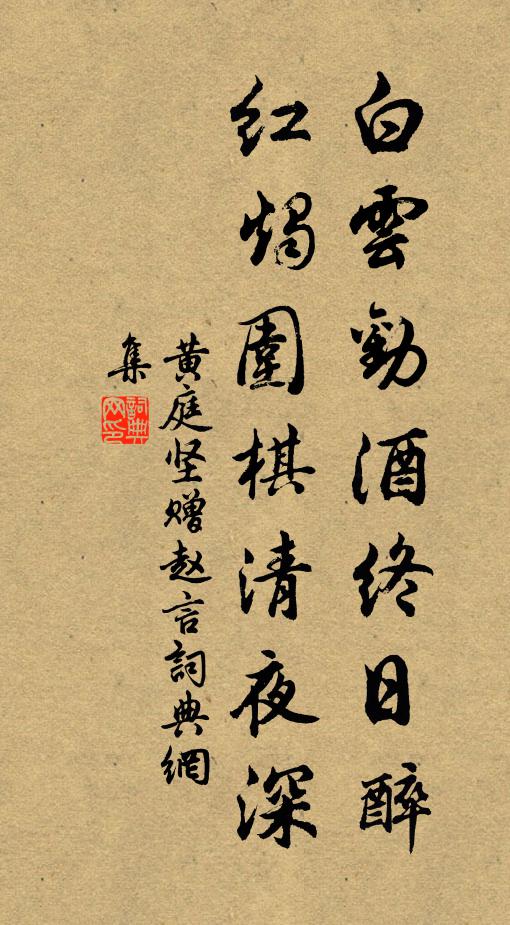 白雲勸酒終日醉
紅燭圍棋清夜深
黄庭坚赠赵言詞典網
集
詞典
网印